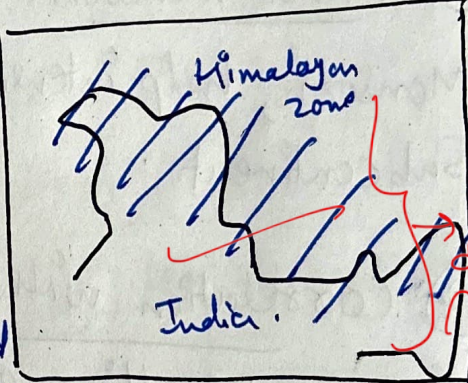 Himalayan
zone
India.